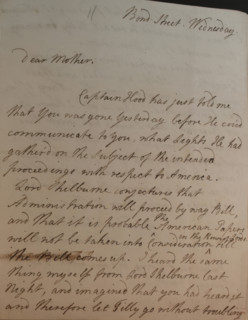 Bond Street. Wednesday
Dear Mother.
Captain Hood has just told me
that You was gone Yesterday before He could
communicate to you. what Lights He had
gatherd on the Subject of the intended
proceedings with respect to America.
Lord Shelburne conjectures that
Administration will proceed by way Bill,
and that it is probable the American Papers
will not be taken into Consideration till
the Bill comes up. I heard the same
thing myself from Lord Shelburne last
Night, and imagined that you had heard it
and therefore let go without troubling